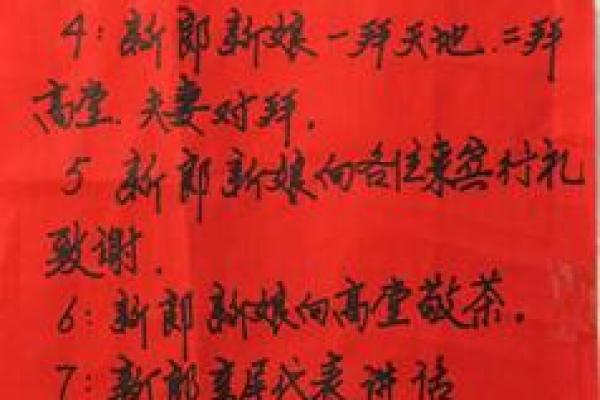 4：新郎新娘一拜天地.二拜
高堂.夫妻对拜.
5 新郎新娘向各位来宾行礼
致谢.
6：新郎新娘向高堂敬茶。
7：新郎亲属代表讲话